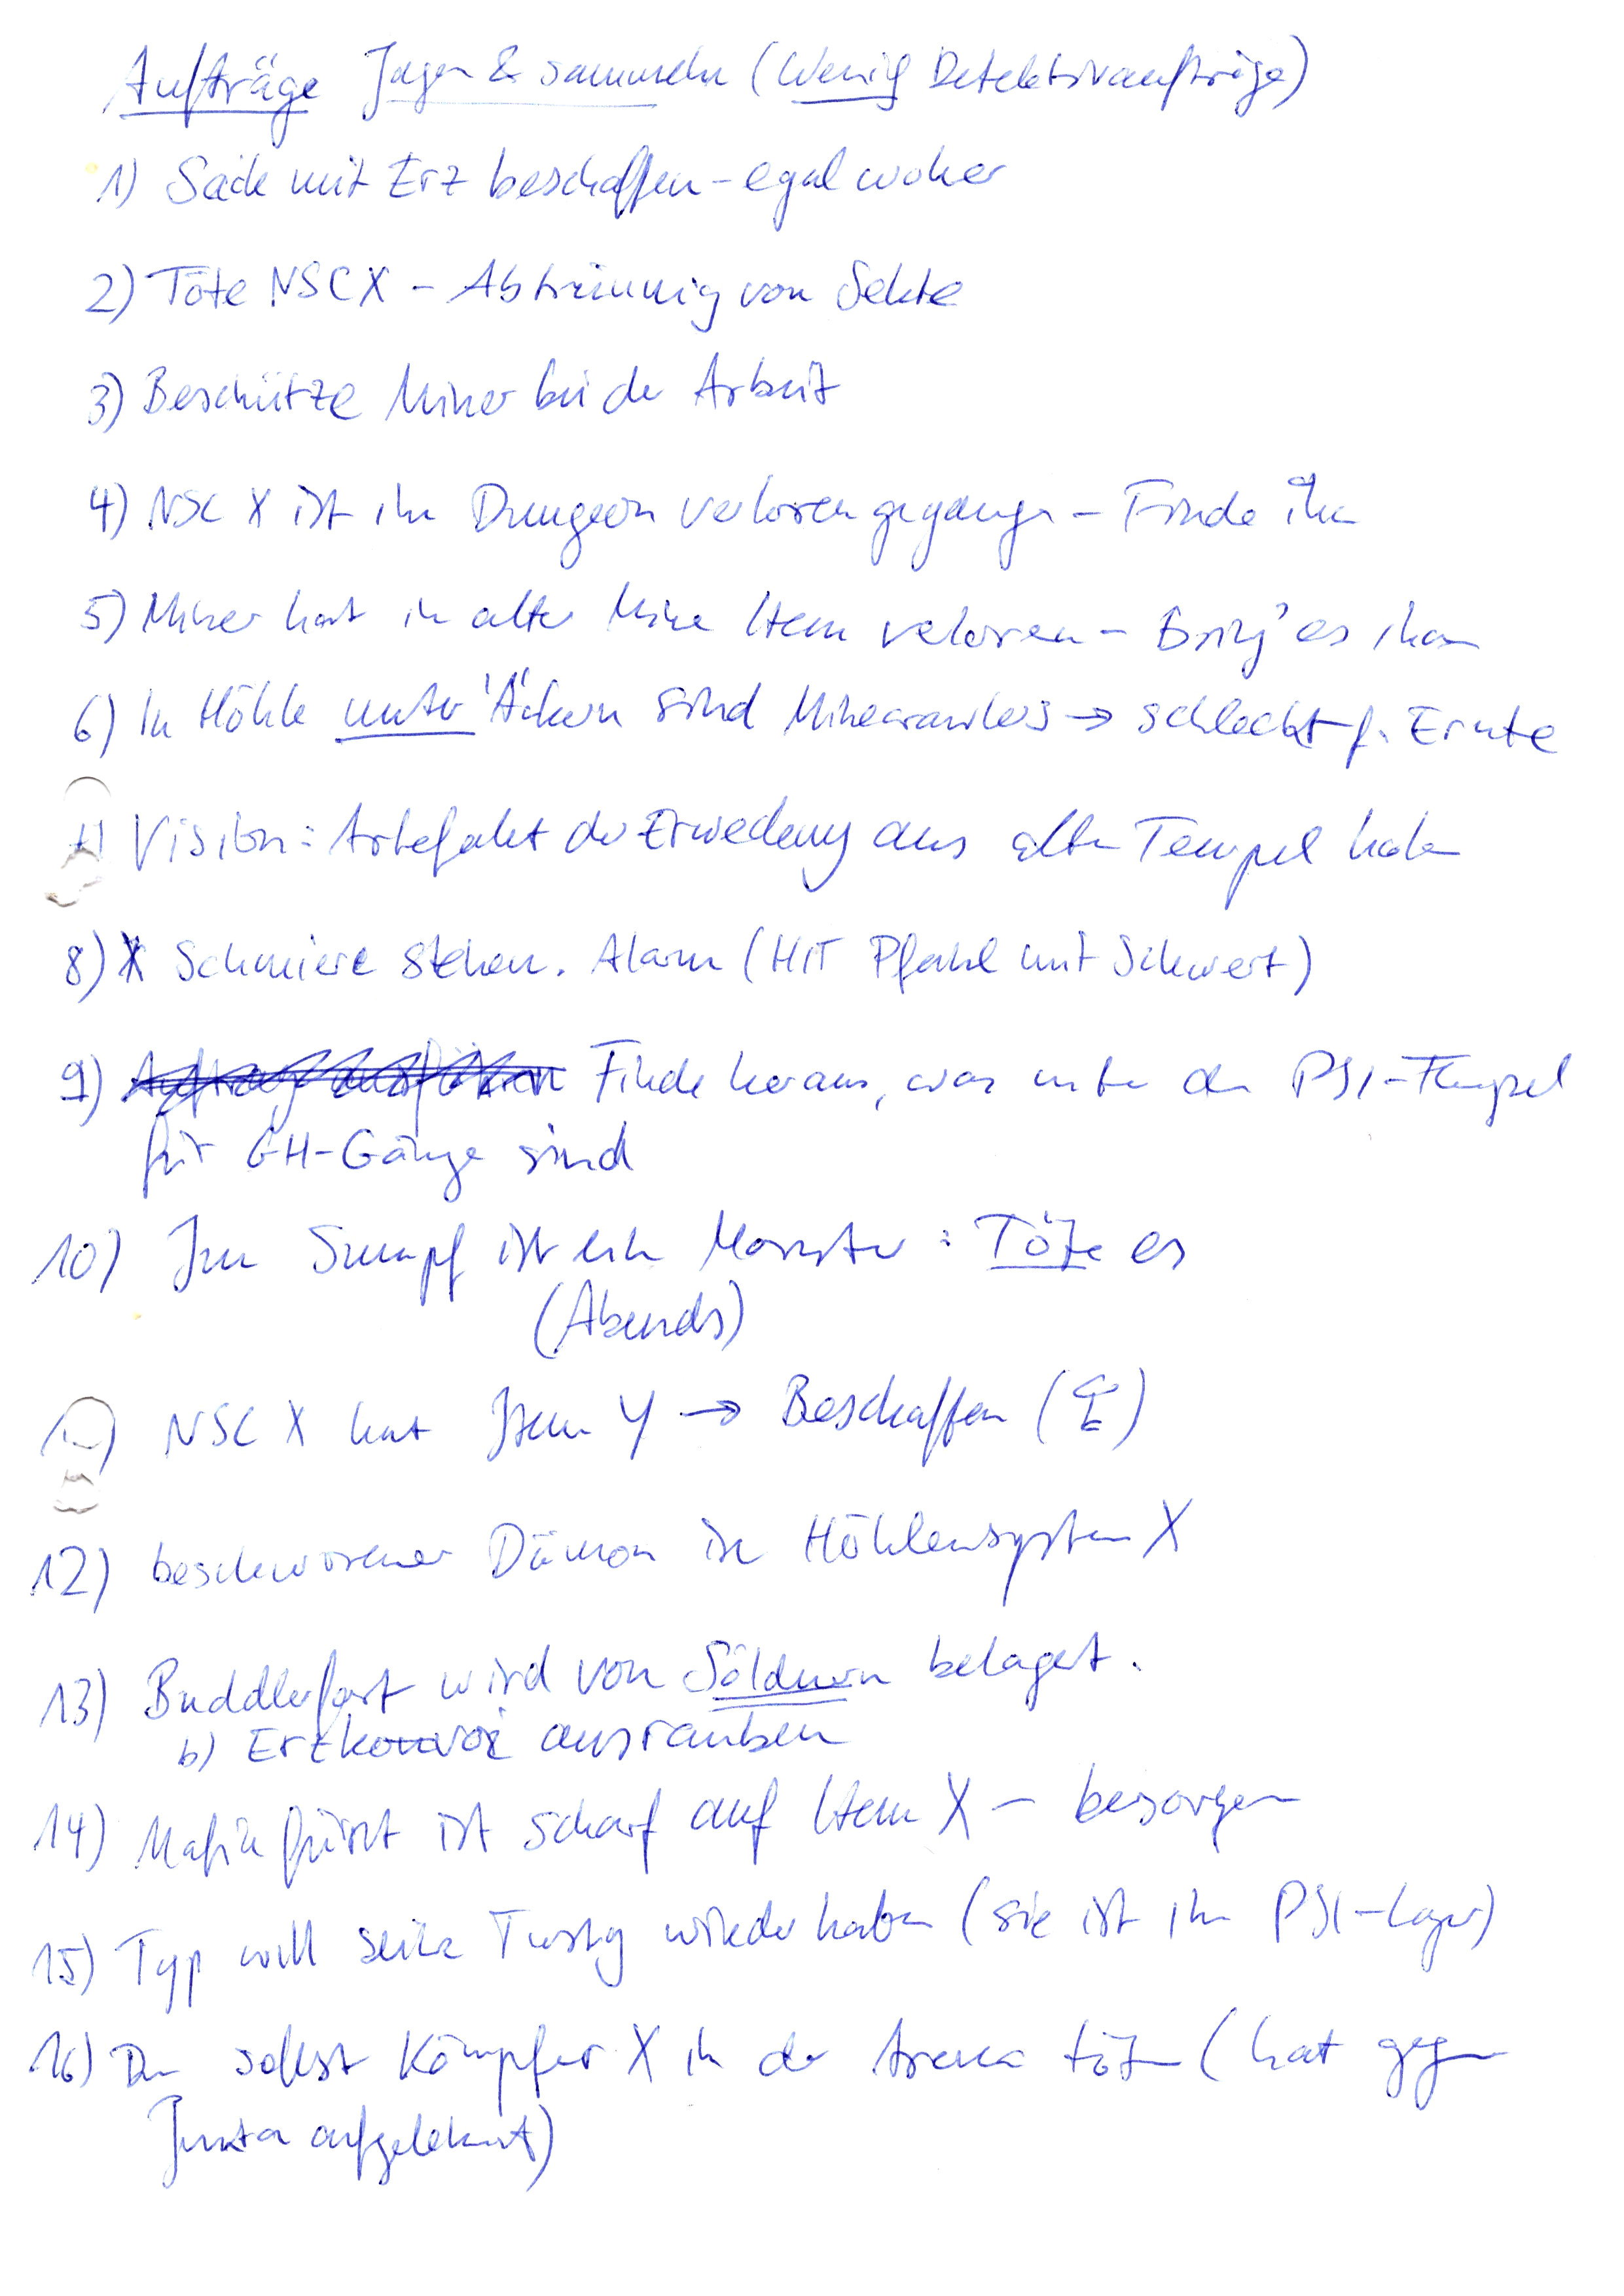 Aufträge Jagen & sammeln (Wenig Detektivaufträge)
1) Säcke mit Erz beschaffen - egal woher
2) Töte NSC X - Abtrünnig von Sekte
3) Beschütze Miner bei der Arbeit
4) NSC X ist im Dungeon verloren gegangen - Finde ihn
5) Miner hat in alter Mine Item verloren - Bring' es ihm
6) In Höhle unter Äckern sind Minecrawlers → schlecht f. Ernte
Vision: Artefakt der Erweckung aus altem Tempel holen
8) X Schmiere stehen. Alarm (HIT Pfahl mit Schwert)
9) Finde heraus, was unter dem PSI-Tempel
für GH-Gänge sind
10) Im Sumpf ist ein Monster: Töte es
(Abends)
NSC X hat Item Y → Beschaffen
12) beschworener Dämon in Höhlensystem X
13) Buddlerfort wird von Söldnern belagert.
b) Erzkonvoi ausrauben
14) Mafiafürst ist scharf auf Item X - besorgen
15) Typ will seine Tussy wiederhaben (sie ist im PSI-Lager)
16) Du sollst Kämpfer X in der Arena töten (hat gegen
Junta aufgelehnt)